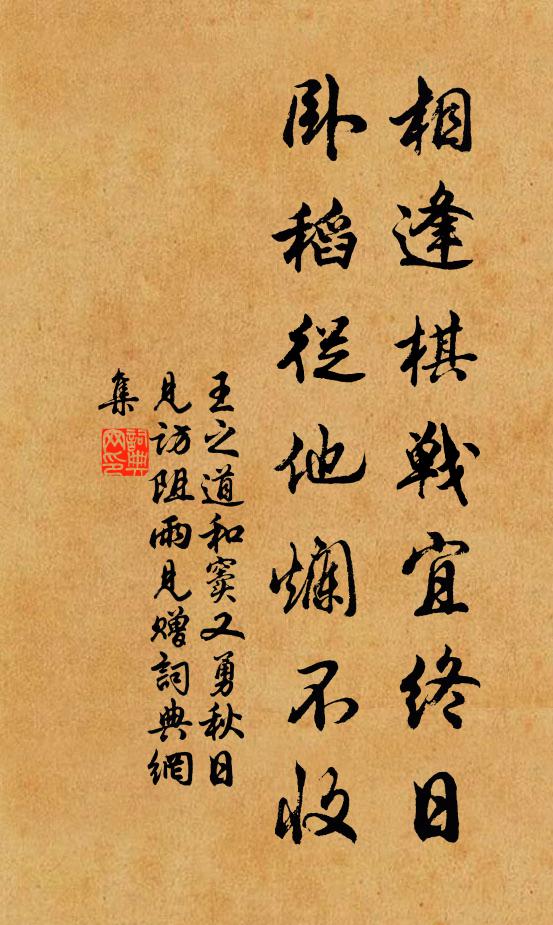 相逢棋戰宜終日
臥稻從他爛不收
王之道和竇又勇秋日
見訪阻雨見贈詞典網
集
詞典
网印